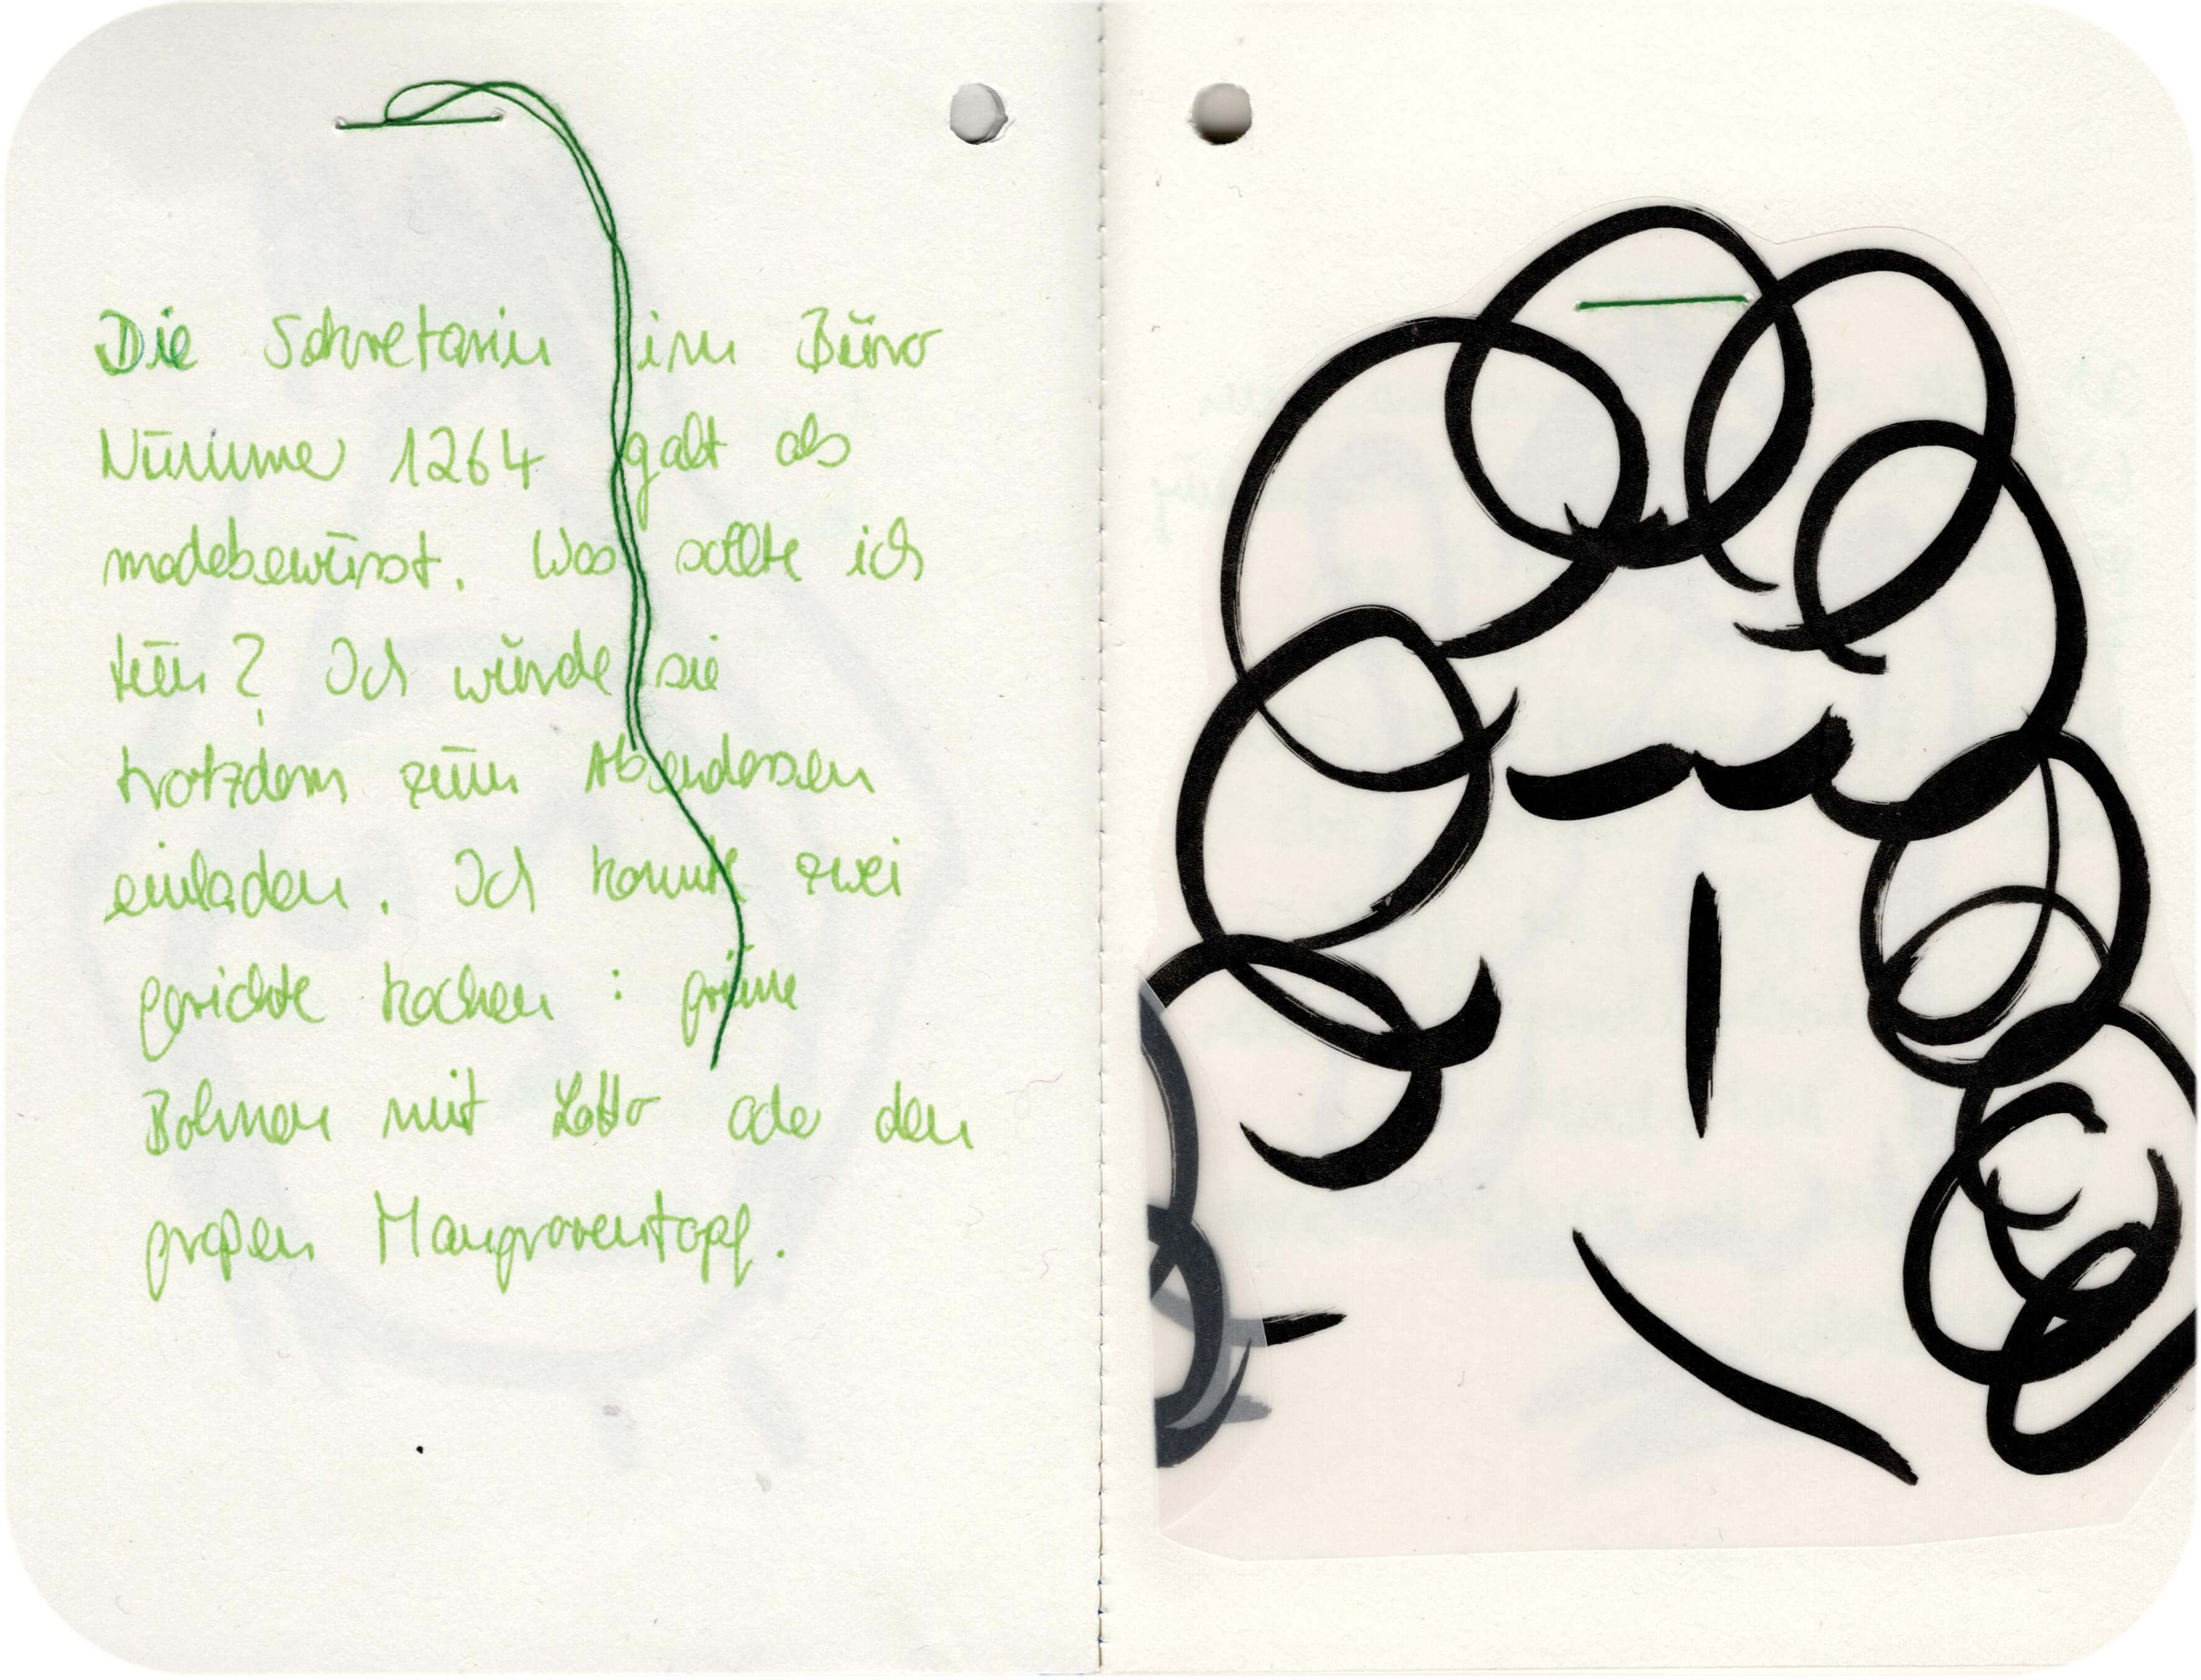 Die Sekretärin im Büro
Nummer 1264 galt als
modebewusst. Was sollte ich
tun? Ich würde sie
trotzdem zum Abendessen
einladen. Ich konnte zwei
gerichte kochen: grüne
Bohnen mit Lotto oder den
großen Mangroventopf.